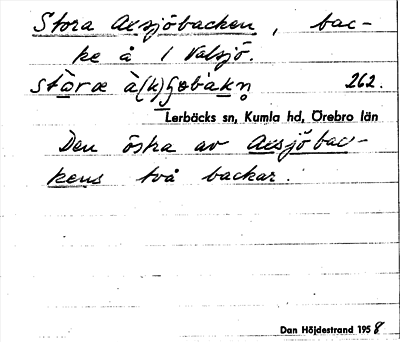 Stora Axsjöbacken, bac-
ke å 1 Valsjö.
262.
Lerbäcks sn, Kumla hd, Örebro län
Den östra av Axsjöbac-
kens två backar.
Dan Höjdestrand 1958